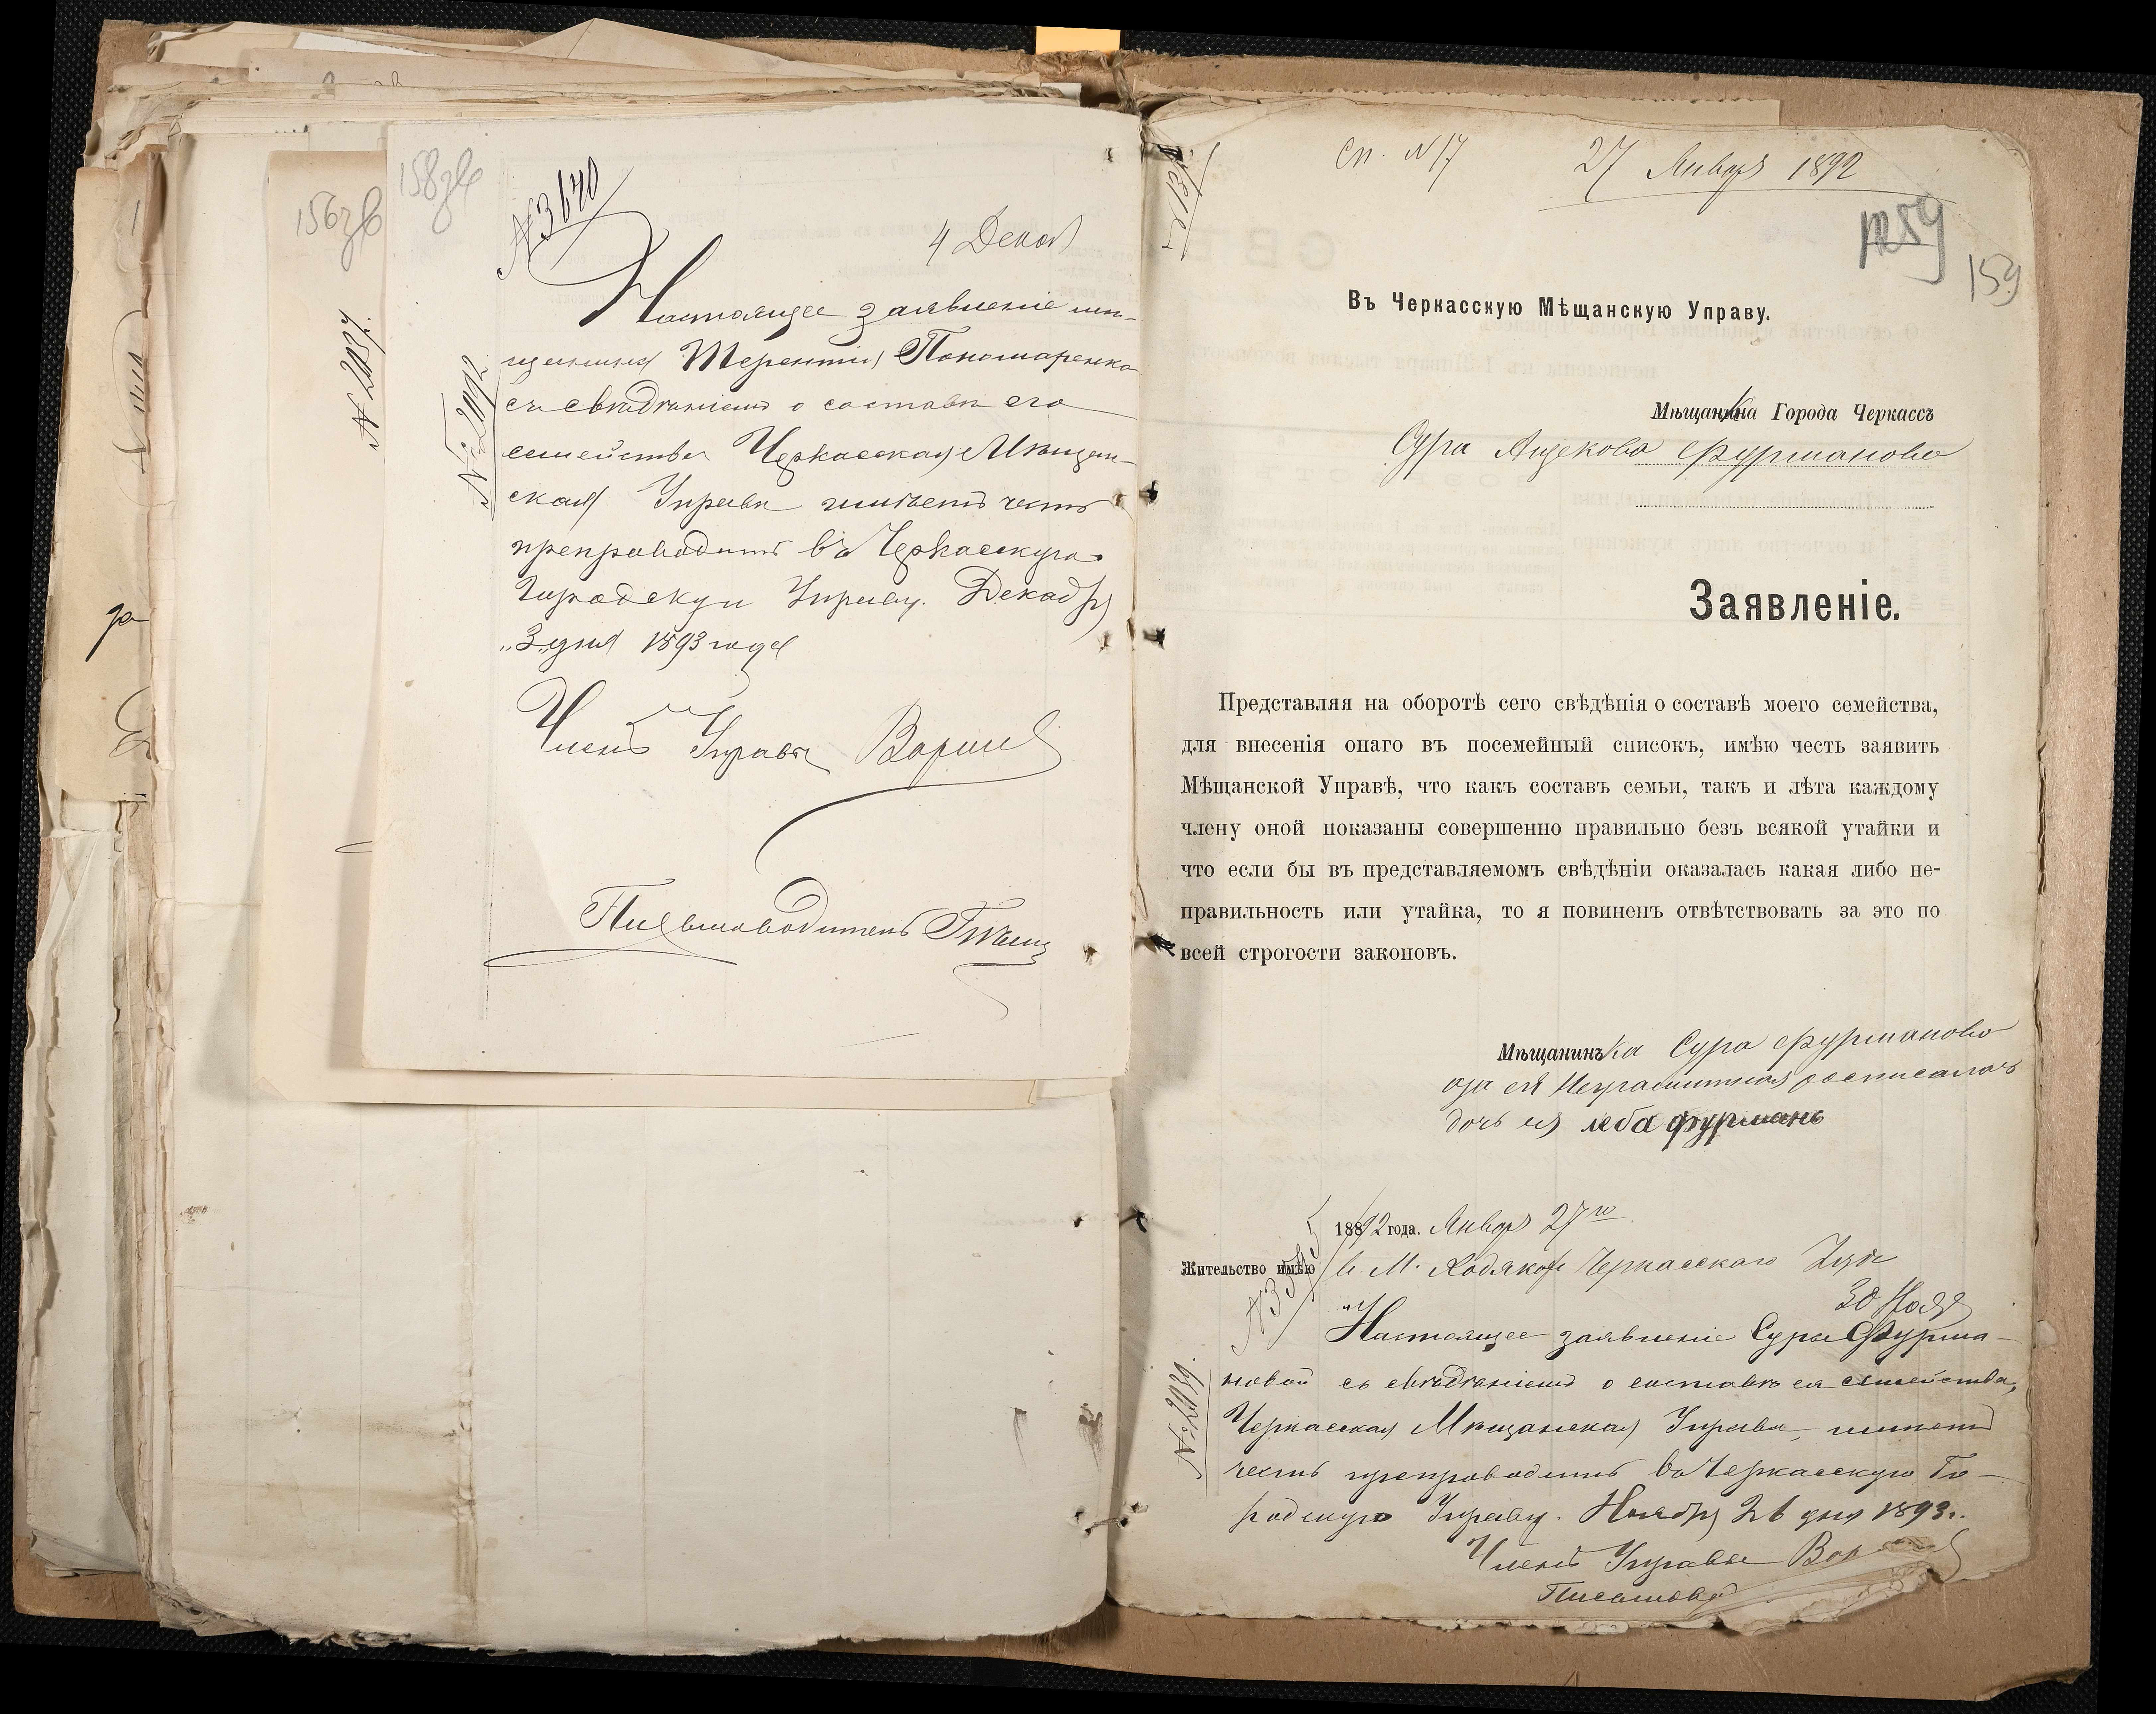 156 зв
158 зв
№ 2037.
№ 3640
4 Декаб
№ 2092
Настоящее заявленіе мѣ-
щанина Терентія Пономаренко
съ свѣдѣніемъ о составѣ его
семейства Черкасская Мѣщан-
ская Управа имѣетъ честь
препроводить въ Черкасскую
Городскую Управу. Декабря
"3" дня 1893 года
Членъ Управы
Письмоводитель
сп. № 17
27 Января 1892
159
Въ Черкасскую Мѣщанскую Управу.
Мѣщанка Города Черкассъ
Сура Ицекова Фурманова
Заявленіе.
Представляя на оборотѣ сего свѣдѣнія о составѣ моего семейства,
для внесенія онаго въ посемейный списокъ, имѣю честь заявить
Мѣщанской Управѣ, что какъ составъ семьи, такъ и лѣта каждому
члену оной показаны совершенно правильно безъ всякой утайки и
что если бы въ представляемомъ свѣдѣніи оказалась какая либо не-
правильность или утайка, то я повиненъ отвѣтствовать за это по
всей строгости законовъ.
Мѣщанинъка Сура Фурманова
а за ея Неграмотная росписалась
дочь ея леба фурманъ
1892 года. Января 27го
Жительство имѣю в М. Черкасскаго Уѣз
30 Нояб
Настоящее заявленіе Суры Фурма-
новой съ свѣдѣніемъ о составѣ ея семейства,
№ 2039.
Черкасская Мѣщанская Управа, имѣетъ
честь препроводить въ Черкасскую Го-
родскую Управу. Ноября 26 дня 1893 г.
Членъ Управы
Письмовод